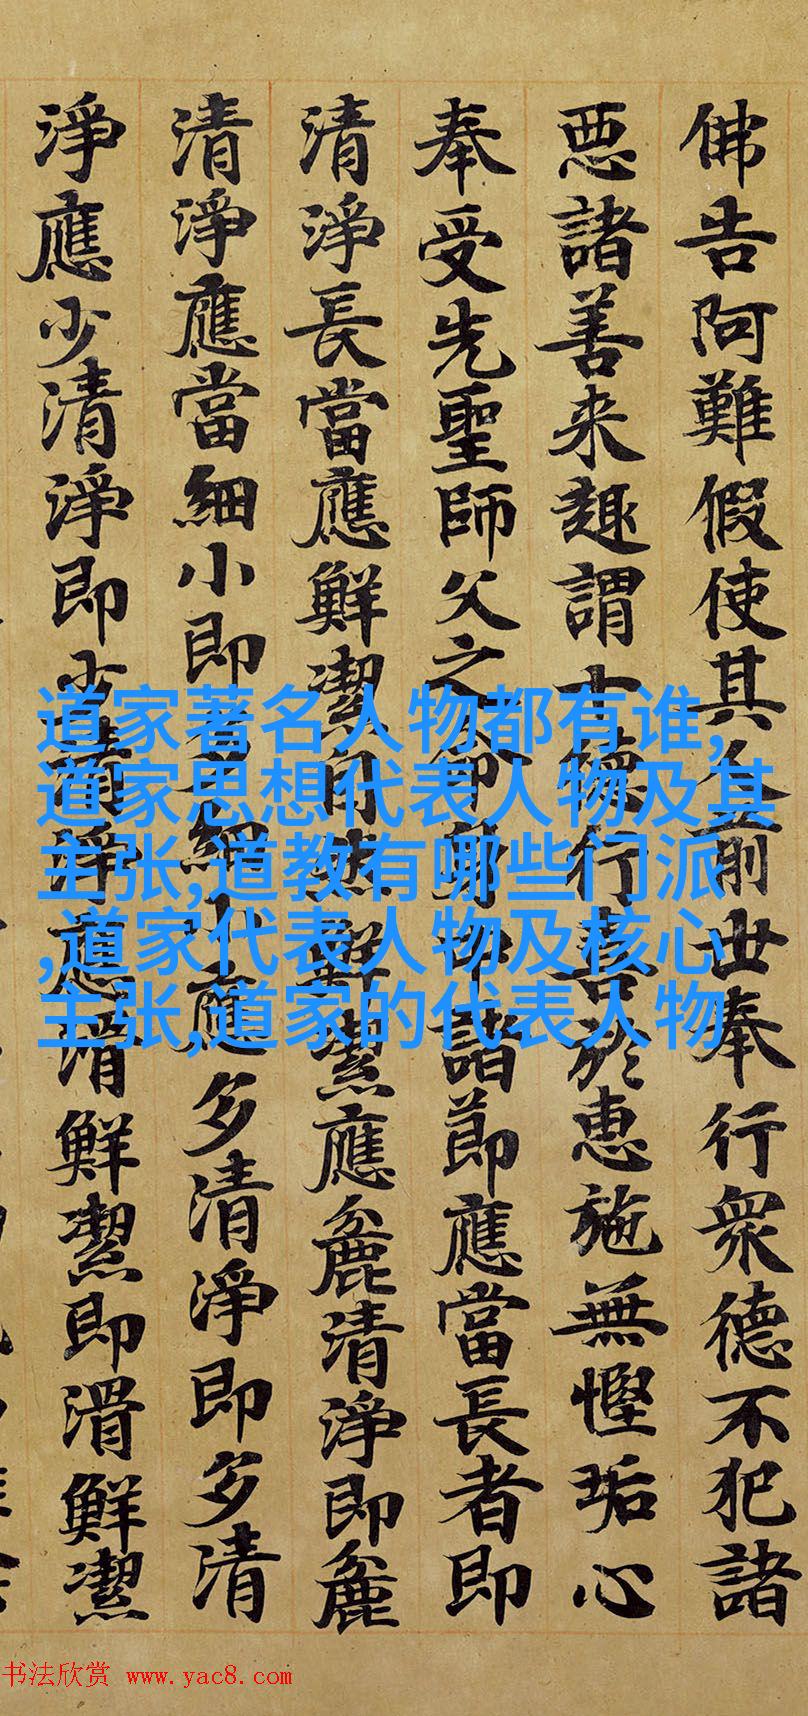 佛告阿難假使其人前世奉行眾德不犯諸
悪諸善来趣謂十德行善於恵施無慳垢心
奉受先聖師父之諸節應當長者即
清淨長當應鮮潔自然鮮潔應麁清淨即麁
清淨應當細小即細小應多清淨即多清
淨應少清淨即少清淨應滑鮮潔即滑鮮潔
道家著名人物都有谁,
道家思想代表人物及其
主张,道教有哪些门派
,道家代表人物及核心
主张,道家的代表人物
书法欣赏 www.yac8.com